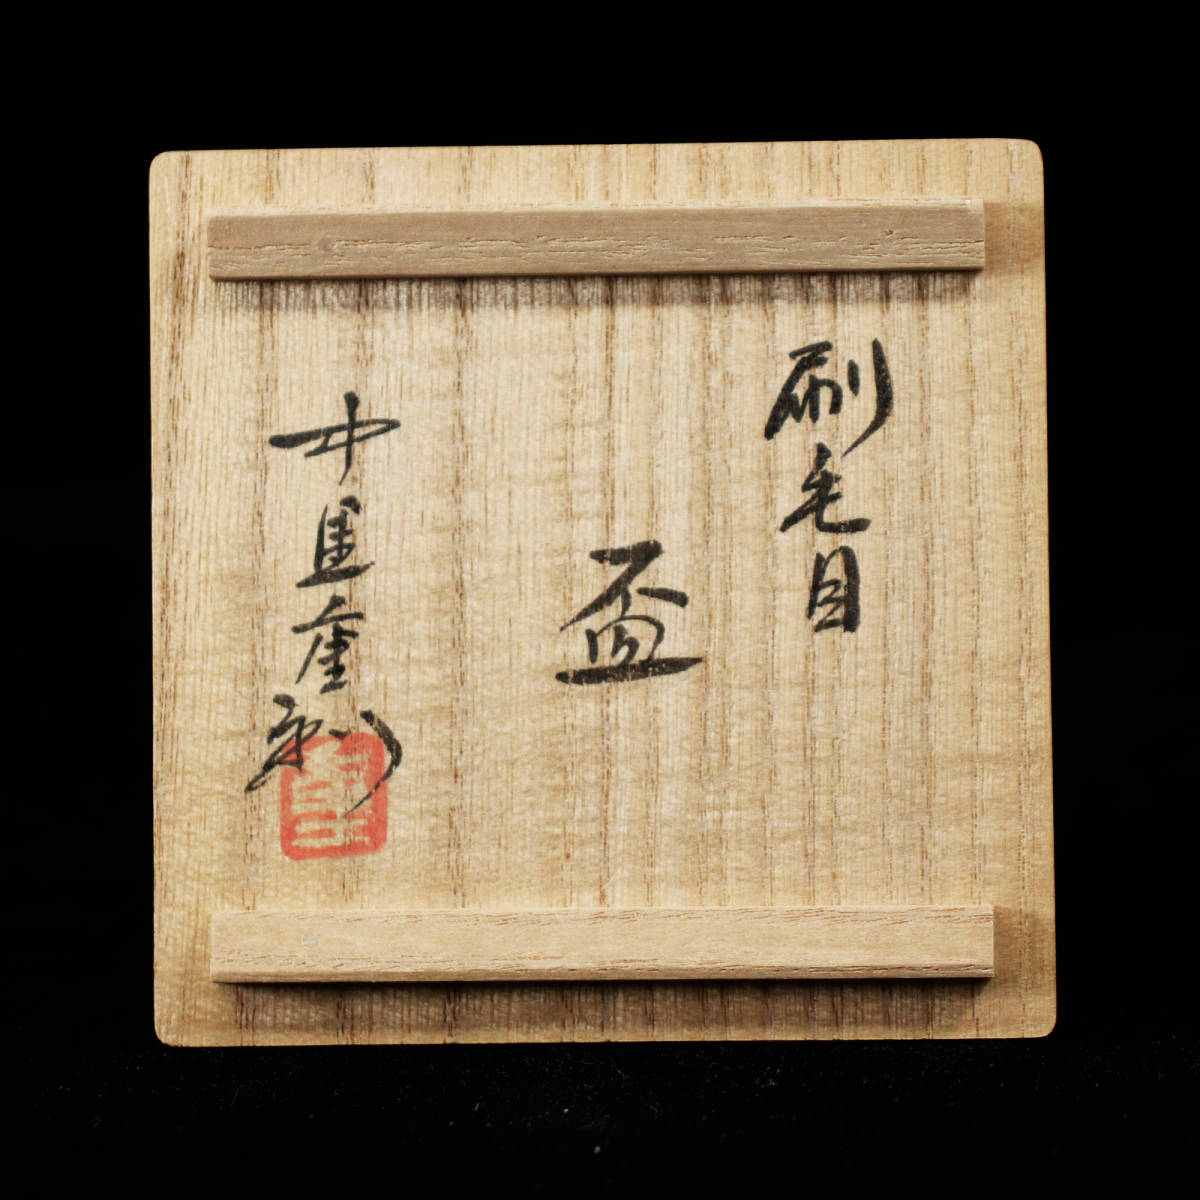 刷毛目
盃
中里重利